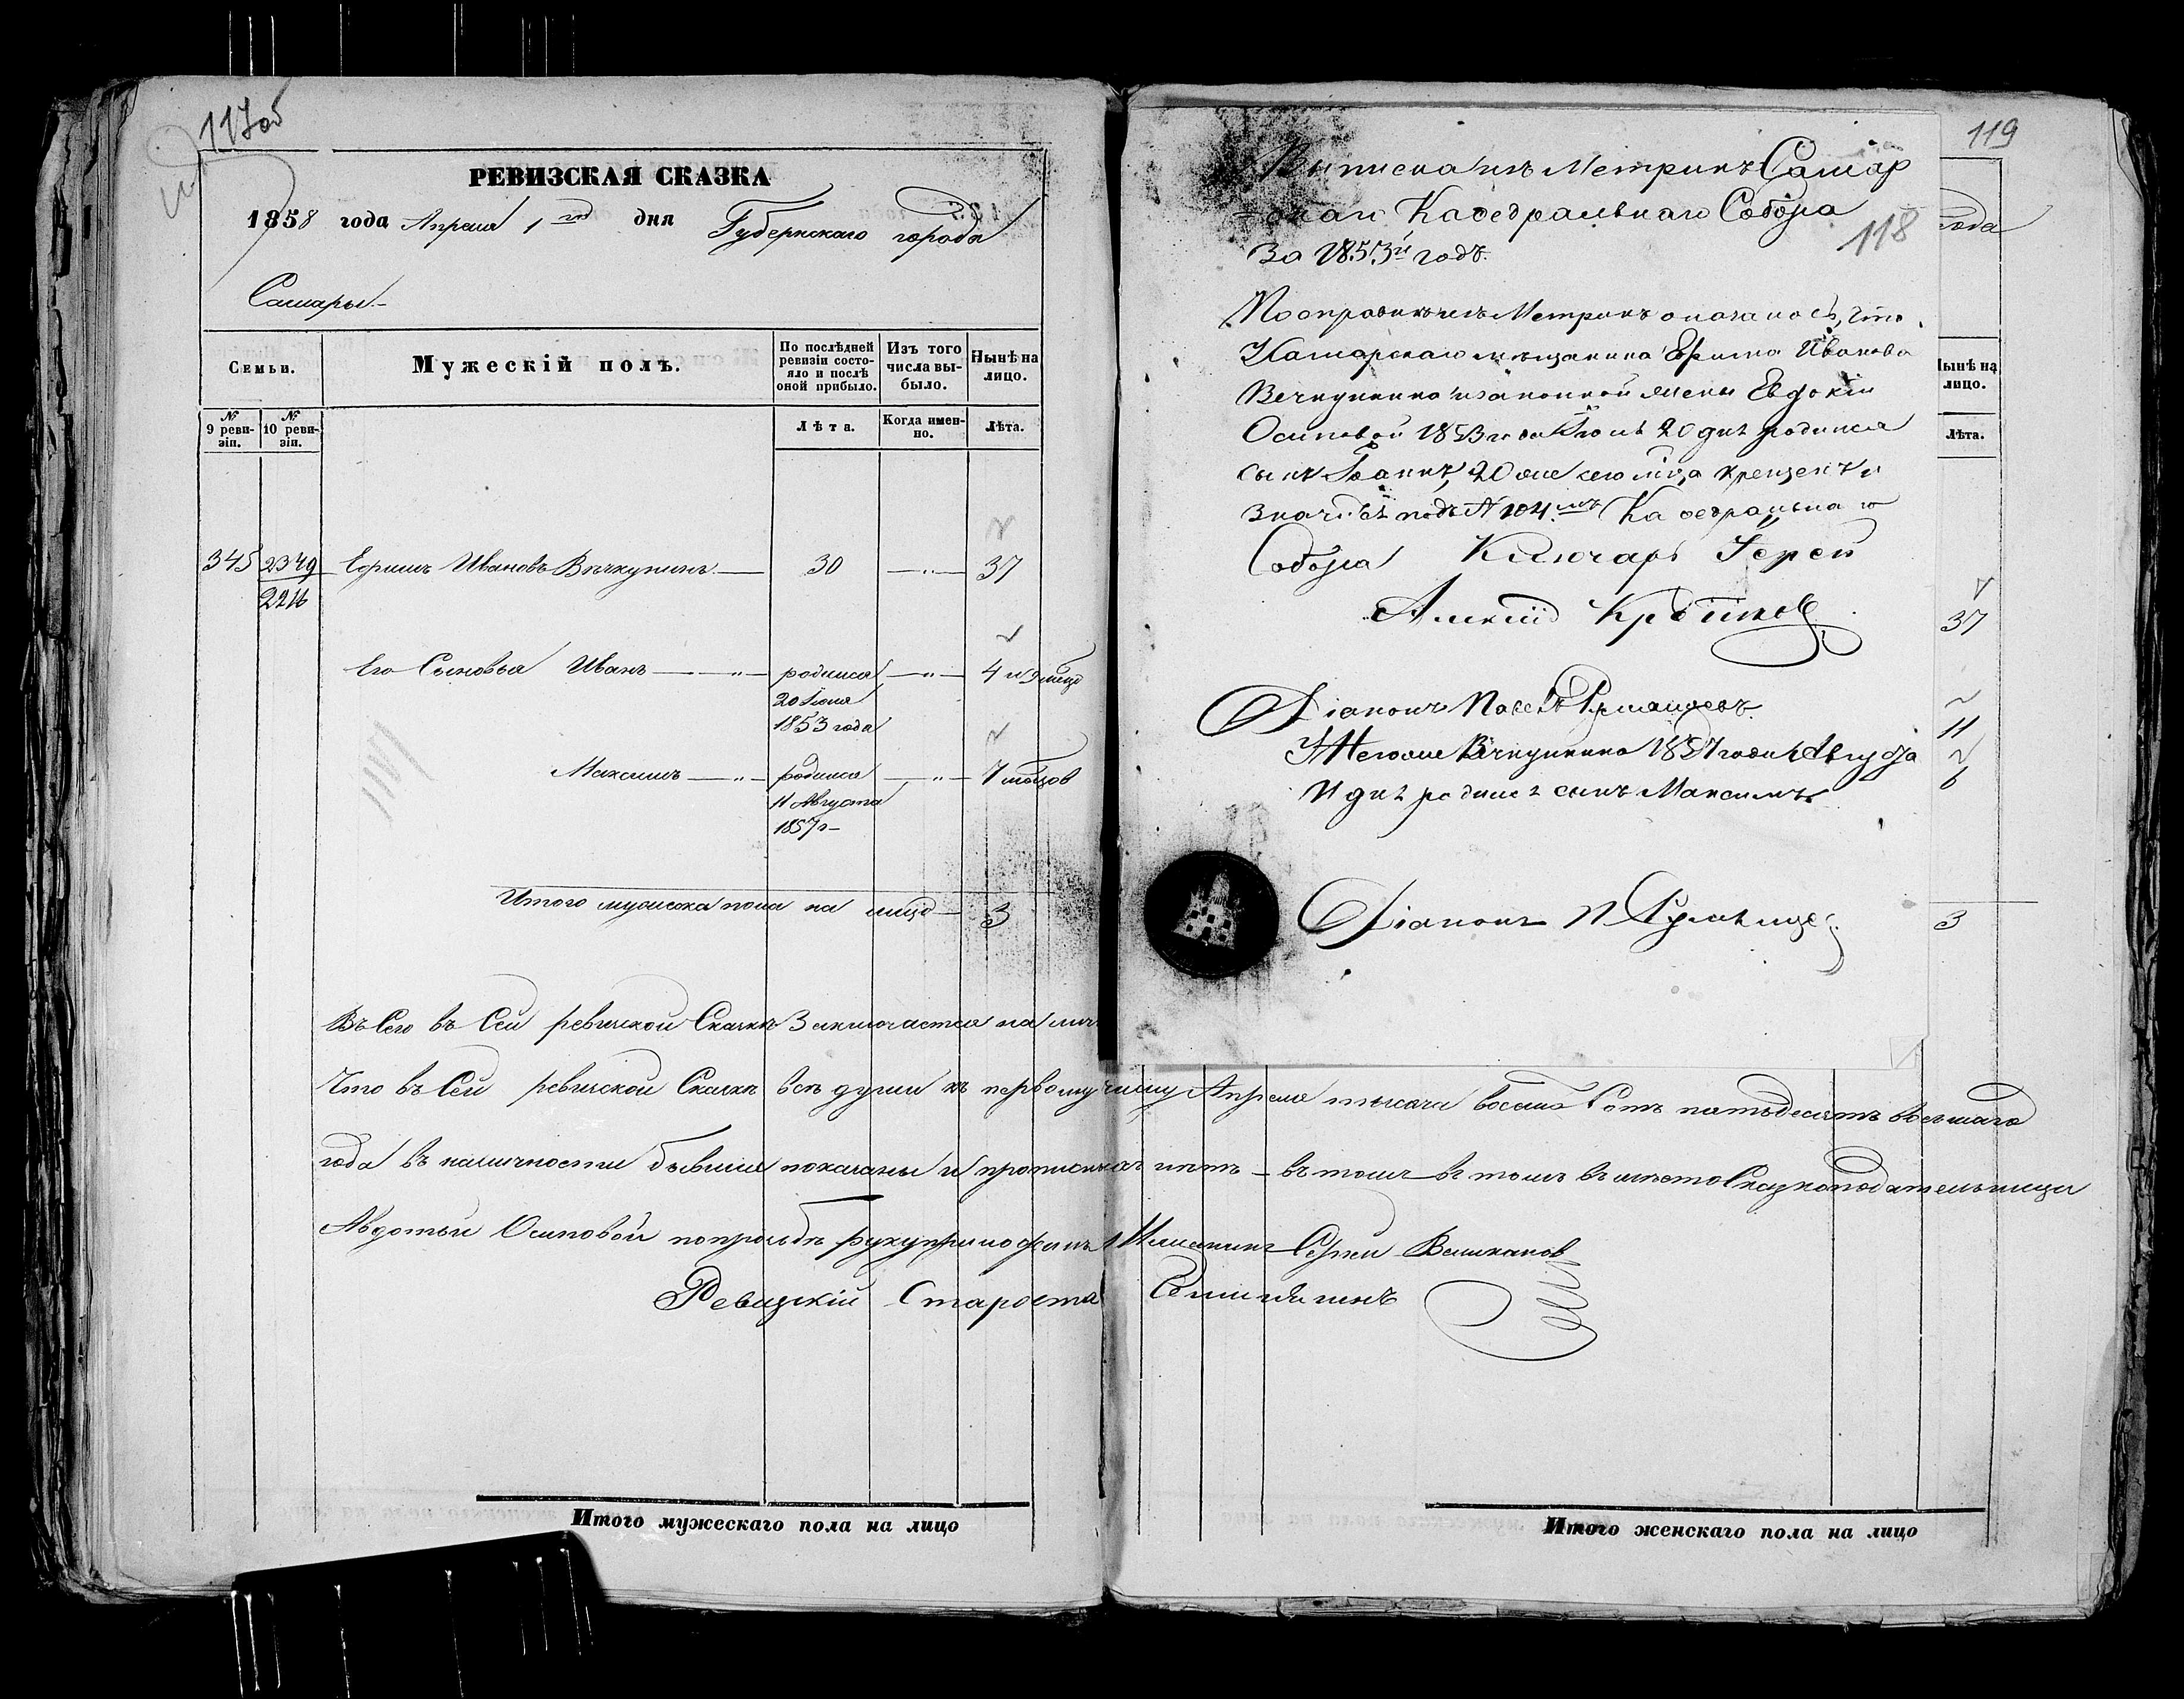 117об
РЕВИЗСКАЯ СКАЗКА
1858 года Апреля 1го дня Губернскаго города
Самары
Семьи.
Мужескій полъ.
По послѣдней ревизіи состояло и послѣ оной прибыло.
Изъ того числа выбыло.
Нынѣ на лицо.
№ 9 ревизіи.
№ 10 ревизіи.
Лѣта.
Когда именно.
Лѣта.
345 2349 Ефимъ Ивановъ Вѣчкунинъ 30 — " — 37
2216
Его Сыновья Иванъ — " — родился — " — 4 и 9 мцо
20 Іюня
1853 года
Максимъ — " — родился — " — 7 мцов
11 Августа
1857 г
Итого мужеска пола на лицо 3
Въ Сего въ Сей ревиской Сказкѣ Заключается на
Что въ Сей ревиской Сказкѣ всѣ души къ первому числу Апреля тысяча восемь Сотъ пятьдесятъ восьмаго
года въ наличности бывшие показаны и прописныхъ нѣтъ — въ томъ въ томъ въ место Сказкоподательницы
Авдотьи Осиповой по прозьбѣ руку приложилъ Сергей Великанов
Ревизкій Староста
Итого мужескаго пола на лицо
119
Выписка изъ Метрикъ Самар
скаго Кафедральнаго Собора
118
За 1853й годъ.
По справкѣ изъ Метрикъ оказалось, что
Самарскаго мещанина Ефима Иванова
Вечкунина изаконной жены Евдокіи
Осиповой 1853 года Июня 20 дня родился
сынъ Іоаннъ, 20 же сего мца крещенъ и
значится подъ № 104мъ Кафедральнаго
Собора Ключарь Іерей
Алексій
Діаконъ Павелъ Румянцевъ.
У Него же Вѣчкунина 1857 года Августа
11 дня родился сынъ Максимъ
Діаконъ П Румянцев
года
Нынѣ на лицо.
Лѣта.
37
11
6
3
Итого женскаго пола на лицо